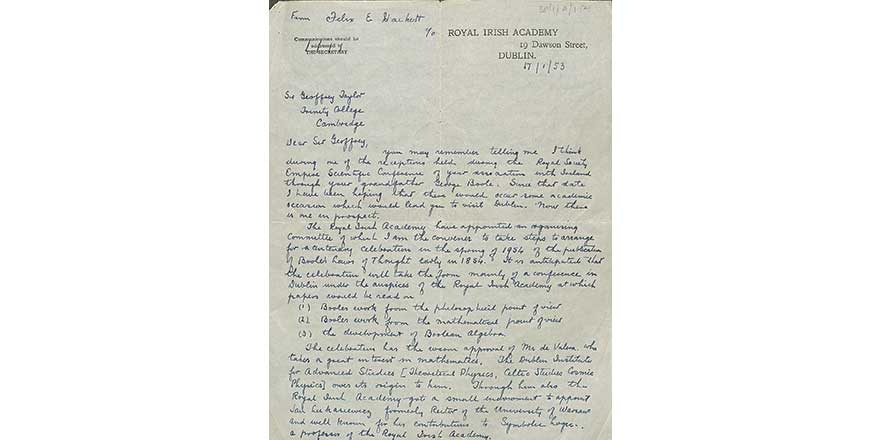 From Felix E Hackett
c/o ROYAL IRISH ACADEMY
Communications should be
addressed to
THE SECRETARY
19 Dawson Street,
DUBLIN.
17/1/53
Sir Geoffrey Taylor
Trinity College
Cambridge
Dear Sir Geoffrey,
you may remember telling me I think
during one of the receptions held during the Royal Society
Empire Scientific Conference of your association with Ireland
through your grandfather George Boole. Since that date
I have been hoping that there would occur some academic
occasion which would lead you to visit Dublin. Now there
is one in prospect.
The Royal Irish Academy have appointed an organising
Committee of which I am the convener to take steps to arrange
for a centenary celebration in the spring of 1954 of the publication
of Boole's Laws of Thought early in 1854. It is anticipated that
the celebration will take the form mainly of a conference in
Dublin under the auspices of the Royal Irish Academy at which
papers would be read on
(1) Booles work from the philosophical point of view
(2) Booles work from the mathematical point of view
(3) the development of Boolean Algebra.
The celebration has the warm approval of Mr de Valera who
takes a great interest in mathematics. The Dublin Institute
for Advanced Studies [Theoretical Physics, Celtic Studies Cosmic
Physics] owes its origin to him. Through him also the
Royal Irish Academy got a small endowment to appoint
Jan Lukasiewicz formerly Rector of the University of Warsaw
and well known for his contributions to Symbolic Logic.,
a professor of the Royal Irish Academy.